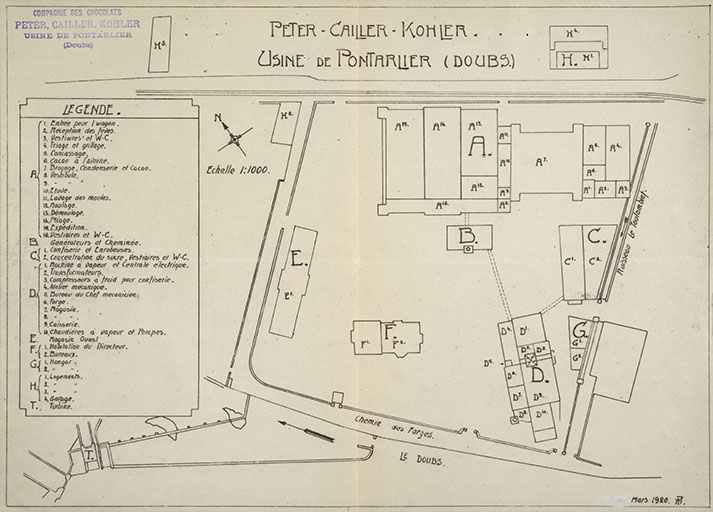 COMPAGNIE DES CHOCOLATS
PETER, CAILLER, KOHLER
USINE DE PONTARLIER
(Doubs)
PETER-CAILLER-KOHLER.
USINE DE PONTARLIER (DOUBS.)
LÉGENDE.
A. 1. Entrée pour 1 wagon.
2. Réception des fèves.
3. Vestiaires et W-C.
4. Triage et grillage.
5. Concassage.
6. Cacao à l'avoine.
7. Broyage, Condenserie et Cacao.
8. Vestibule.
9. " "
10. Etuve.
11. Lavage des moules.
12. Moulage.
13. Démoulage.
14. Pliage.
15. Expédition.
16. Vestiaires et W-C.
B. Générateurs et Cheminée.
C. 1. Confiserie et Enrobeuses.
2. Concentration du sucre, Vestiaires et W-C.
D. 1. Machine à vapeur et Centrale électrique.
2. Transformateurs.
3. Compresseurs à froid pour confiserie.
4. Atelier mécanique.
5. Bureau du Chef mécanicien.
6. Forge.
7. Magasin.
8. " "
9. Caisserie.
10. Chaudières à vapeur et Pompes.
E. Magasin Ouest
F. 1. Habitation du Directeur.
2. Bureaux.
G. 1. Hangar.
2. "
H. 1. Logements.
2. "
3. "
4. Garage.
T. Turbine.
N
Echelle 1:1000.
H3.
H4.
H. H1.
H2.
A15.
A14.
A13.
A.
A12.
A16.
A7.
A1.
A2.
A3.
A4.
B.
C.
C1.
C2.
Ruisseau le Toulombief.
E.
E1.
F.
F1.
F2.
G.
G1.
G2.
D.
D1.
D7.
D9.
D10.
T.
Chemin des Forges.
LE DOUBS.
Mars 1920.